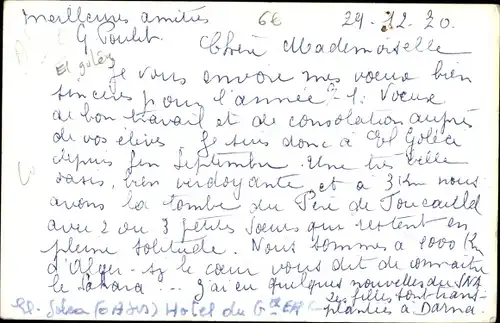 meilleures amitiés 6€ 29-12-20.
G Poulet. Chère Mademoiselle
El goléa
Je vous envoie mes voeux bien
sincères pour l'année Voeux
de bon travail et de consolation auprès
de vos élèves Je suis donc à El Goléa
depuis fin Septembre. Une très belle
oasis, bien verdoyante, et à 3 Km nous
avons la tombe du Père de Foucauld
avec 2 ou 3 petits Soeurs qui restent en
pleine solitude. Nous sommes à 1000 Km
d'Alger - si le coeur vous dit de connaître
le Sahara ... J'ai eu quelques nouvelles du
filles sont trans-
El. Goléa (OASIS) Hotel du Gd ERG
plantées à Darna.